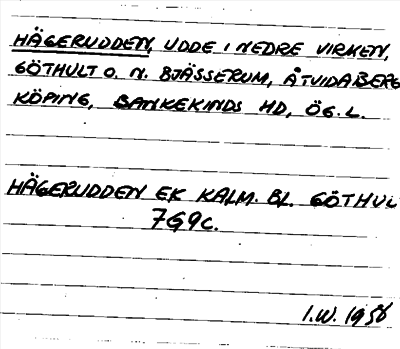 HÄGERUDDEN, UDDE I NEDRE VIRKEN,
GÖTHULT O. N. BJÄSSERUM, ÅTVIDABERG
KÖPING, BANKEKINDS HD, ÖG. L.
HÄGERUDDEN EK KALM. BL. GÖTHUL
7G9c.
I.W. 1956